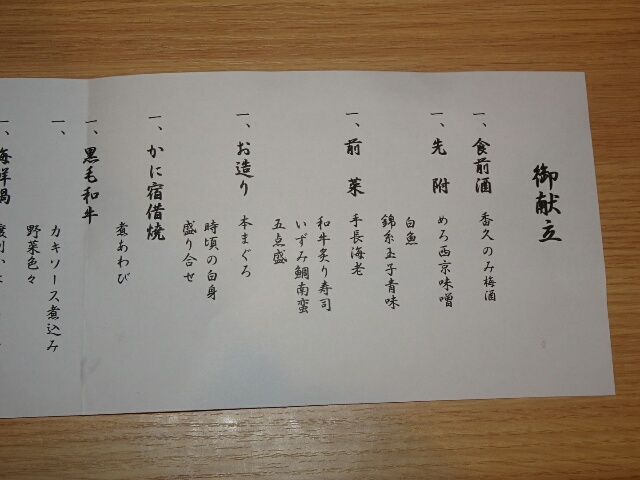 御献立
一、食前酒 香久のみ梅酒
一、先附 めろ西京味噌
白魚
錦糸玉子青味
一、前菜 手長海老
和牛炙り寿司
いずみ鯛南蛮
五点盛
一、お造り 本まぐろ
時頃の白身
盛り合せ
一、かに宿借焼
煮あわび
一、黒毛和牛
一、 カキソース煮込み
野菜色々
一、海鮮鍋